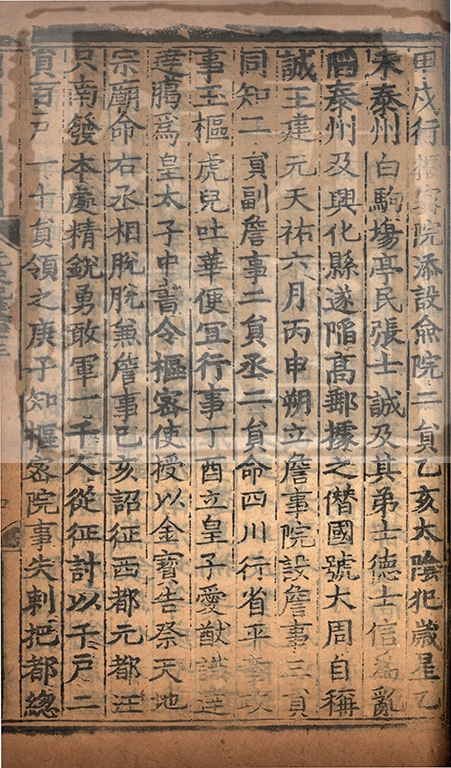 甲戌行樞密院添設僉院二員乙亥太陰犯歲星乙
未泰州白駒場亭民張士誠及其弟士德士信爲亂
陷泰州及興化縣遂陷高郵據之僭國號大周自稱
誠王建元天祐六月丙申朔立詹事院設詹事三員
同知二員副詹事二員丞二員命四川行省平章政
事玉樞虎兒吐華便宜行事丁酉立皇子愛猷識達
臘爲皇太子中書令樞密使授以金寶告祭天地
宗廟命右丞相脫脫兼詹事己亥詔征西都元帥汪
只南發本處精銳勇敢軍一千人從征討以千戶二
員百戶一十員領之庚子知樞密院事失剌把都總